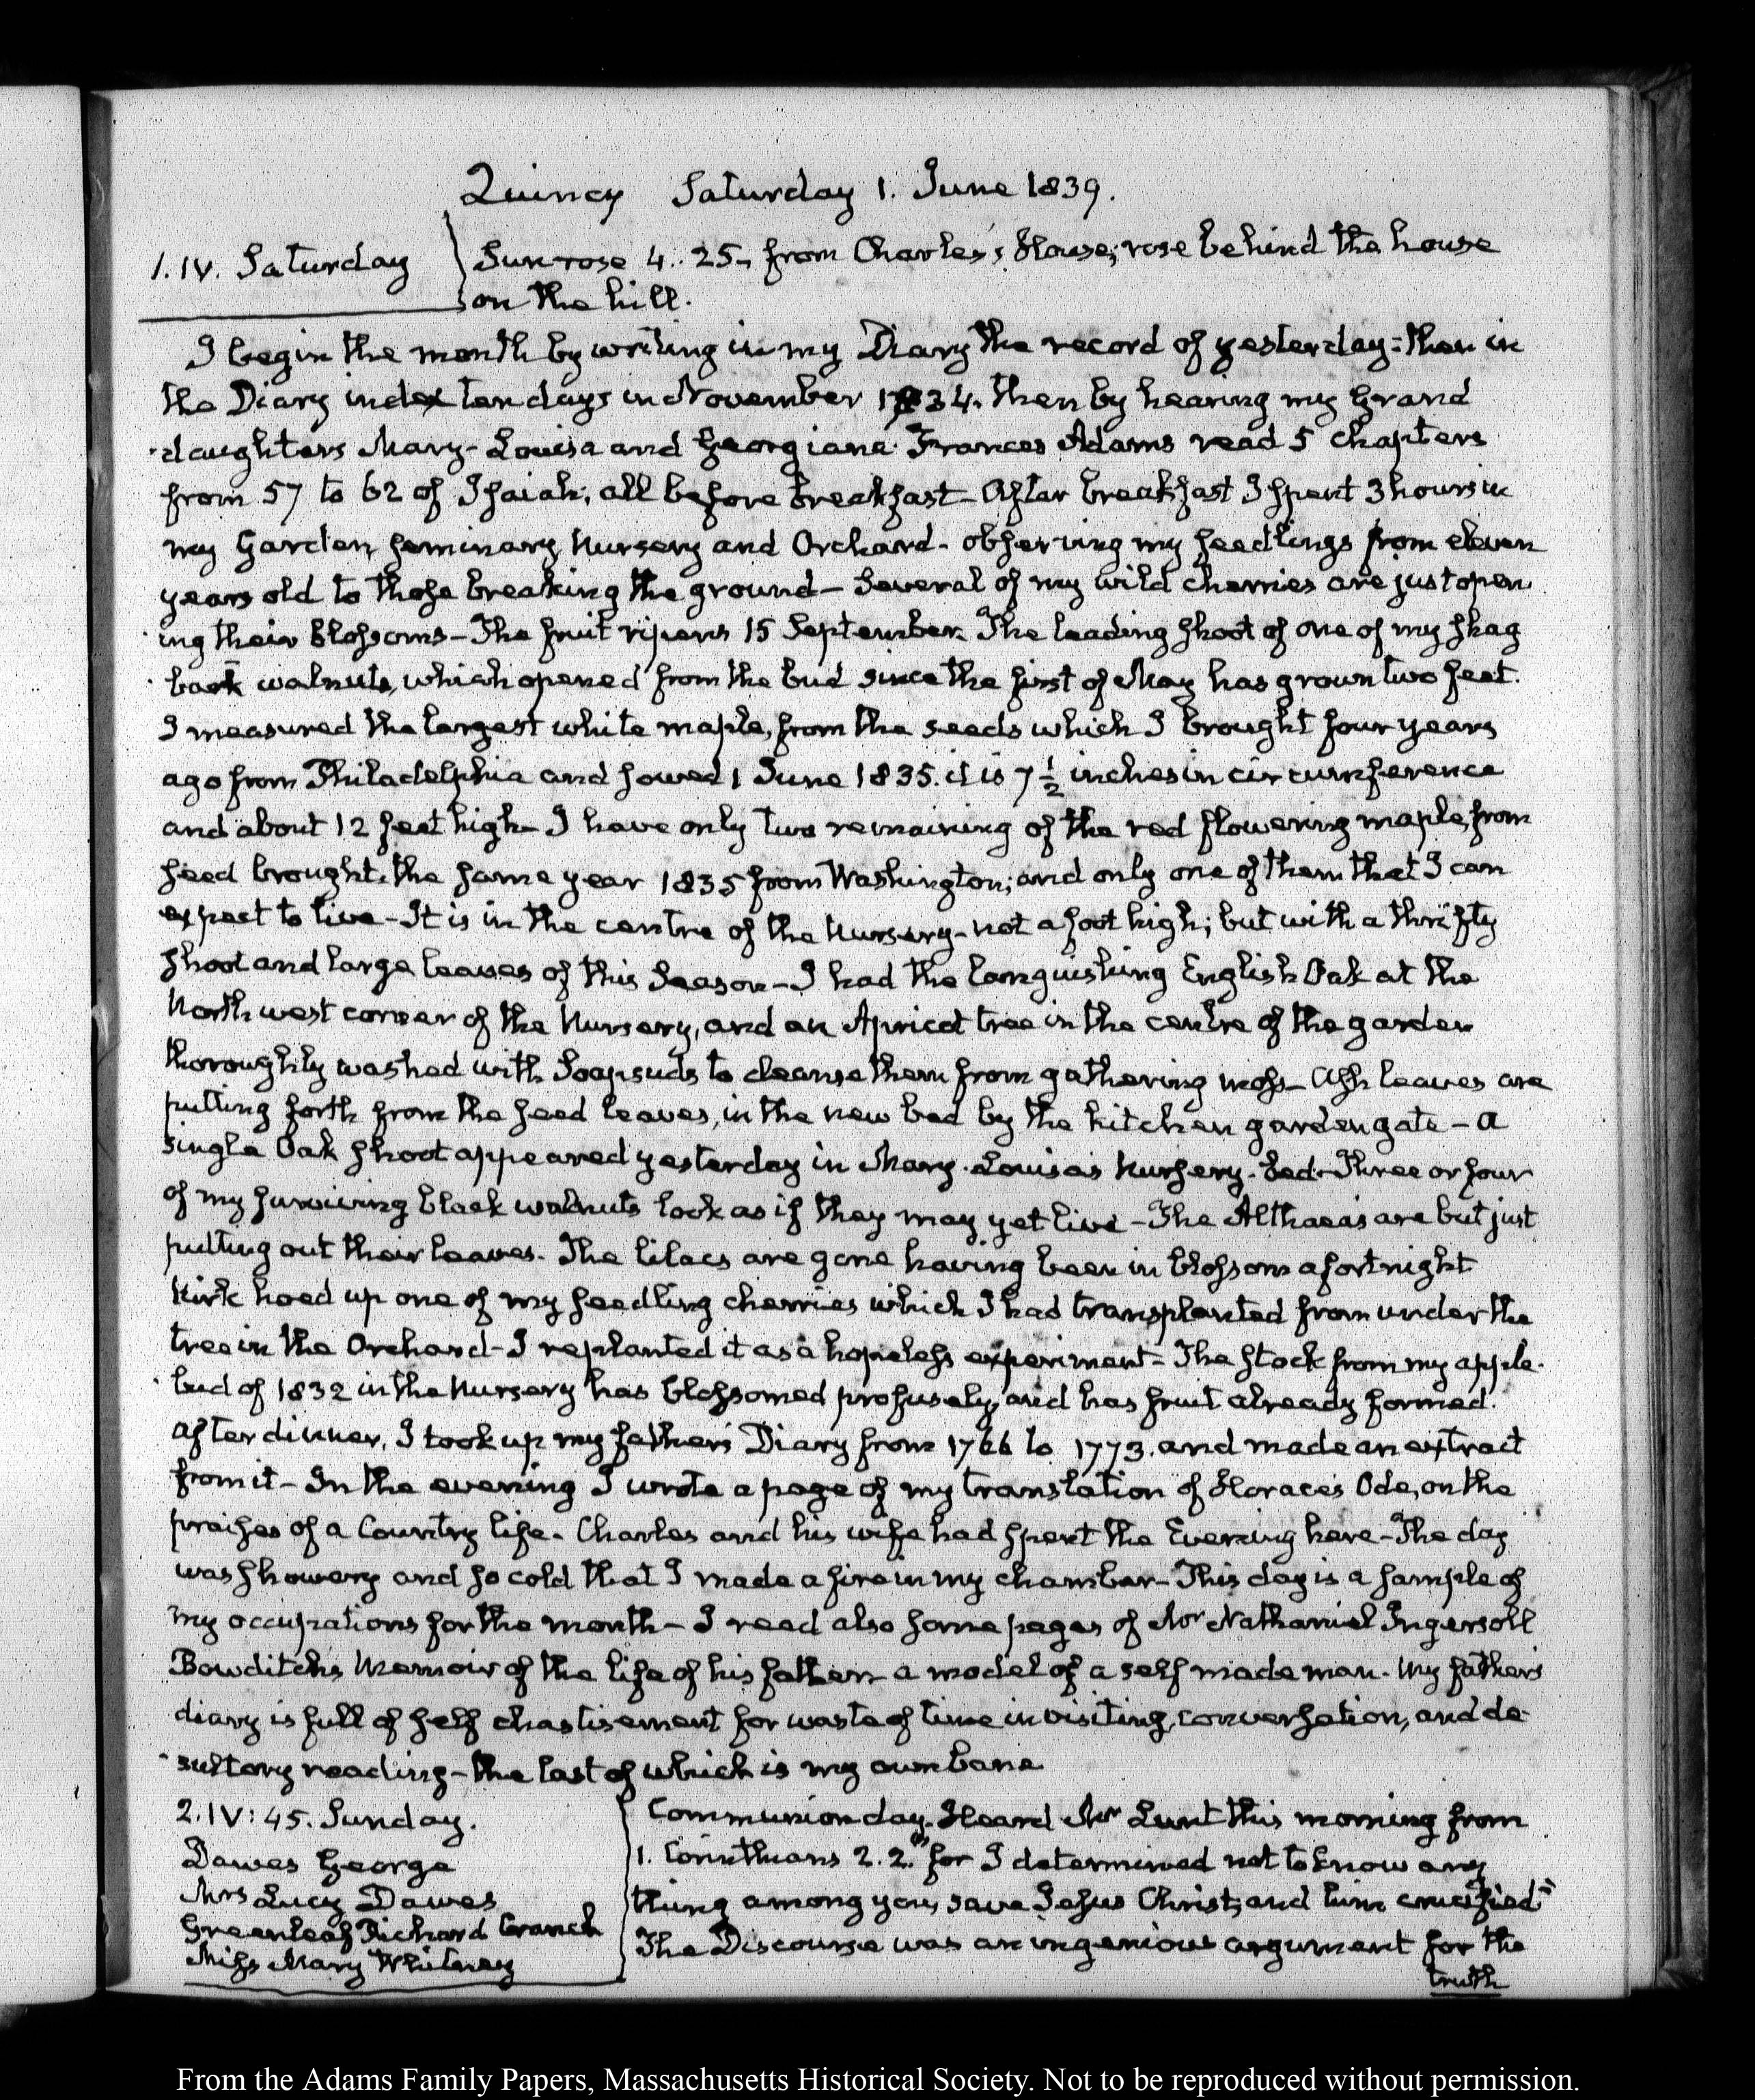 Quincy Saturday 1. June 1839.
1. IV. Saturday
Sun rose 4..25, from Charles's House; rose behind the house
on the hill.
I begin the month by writing in my Diary the record of yesterday: then in
the Diary index ten days in November 1834. then by hearing my Grand
daughters Mary-Louisa and Georgiana Frances Adams read 5 chapters
from 57 to 62 of Isaiah; all before breakfast - After breakfast I spent 3 hours in
my Garden, seminary, Nursery and Orchard - observing my seedlings from eleven
years old to those breaking the ground - Several of my wild cherries are just open
ing their blossoms - The fruit ripens 15 September. The leading shoot of one of my shag
bark walnuts, which opened from the bud since the first of May has grown two feet.
I measured the largest white maple, from the seeds which I brought four years
ago from Philadelphia and sowed 1 June 1835. it is 7 1/2 inches in circumference
and about 12 feet high - I have only two remaining of the red flowering maple, from
seed brought the same year 1835 from Washington; and only one of them that I can
expect to live - It is in the centre of the Nursery - not a foot high; but with a thrifty
shoot and large leaves of this Season - I had the languishing English Oak at the
North west corner of the Nursery, and an Apricot tree in the centre of the garden
thoroughly washed with Soapsuds to cleanse them from gathering moss - Ash leaves are
putting forth from the seed leaves, in the new bed by the kitchen garden gate - A
single Oak shoot appeared yesterday in Mary-Louisa's Nursery-bed - Three or four
of my surviving black walnuts look as if they may yet live - The Althaea's are but just
putting out their leaves. The lilacs are gone having been in blossom a fortnight
Kirk hoed up one of my seedling cherries which I had transplanted from under the
tree in the Orchard - I replanted it as a hopeless experiment - The stock from my apple-
bud of 1832 in the Nursery has blossomed profusely, and has fruit already formed.
After dinner, I took up my father's Diary from 1766 to 1773. and made an extract
from it - In the evening I wrote a page of my translation of Horace's Ode, on the
praises of a Country life. Charles and his wife had spent the Evening here - The day
was showery and so cold that I made a fire in my chamber - This day is a sample of
my occupations for the month - I read also some pages of Mr Nathaniel Ingersoll
Bowditch's Memoir of the life of his father - a model of a self made man. My father's
diary is full of self chastisement for waste of time in visiting, conversation, and de-
sultory reading - the last of which is my own bane
2. IV: 45. Sunday.
Dawes George
Mrs Lucy Dawes
Greenleaf Richard Cranch
Miss Mary Whitney
Communion day. Heard Mr Lunt this morning from
1. Corinthians 2.2. "for I determined not to know any
thing among you, save Jesus Christ, and him crucified"
The Discourse was an ingenious argument for the
truth
From the Adams Family Papers, Massachusetts Historical Society. Not to be reproduced without permission.